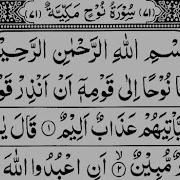 (٧١) سُوْرَةُ نُوْحٍ مَكِّيَّةٌ (٧١)
سْمِ اللهِ الرَّحْمٰنِ الرَّحِيْ
ا نُوْحًا اِلٰى قَوْمِهٖٓ اَنْ اَنْذِرْ قَوْ
ْتِيَهُمْ عَذَابٌ اَلِيْمٌ ۝١ قَالَ يٰ
رٌ مُّبِيْنٌ ۝٢ اَنِ اعْبُدُوا اللهَ